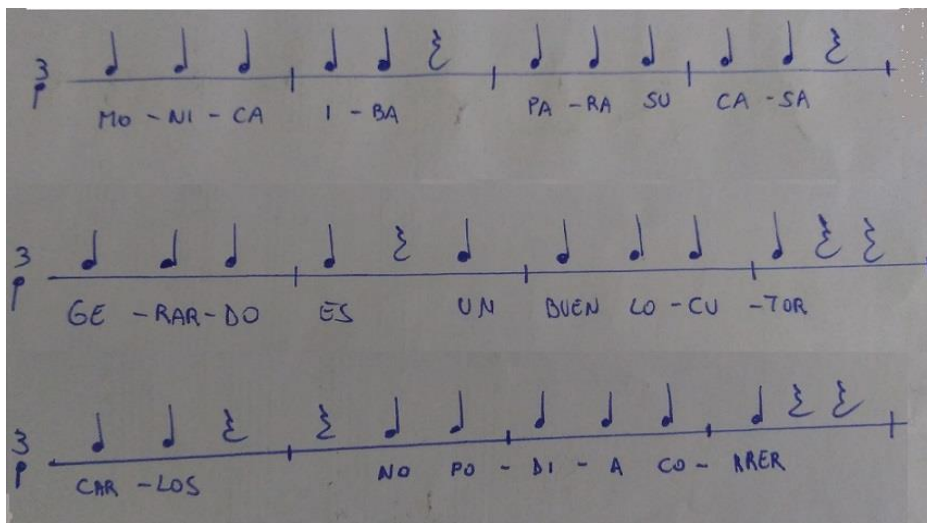 3 MO - NI - CA I - BA PA - RA SU CA - SA
3 GE - RAR - DO ES UN BUEN LO - CU - TOR
3 CAR - LOS NO PO - DI - A CO - RRER